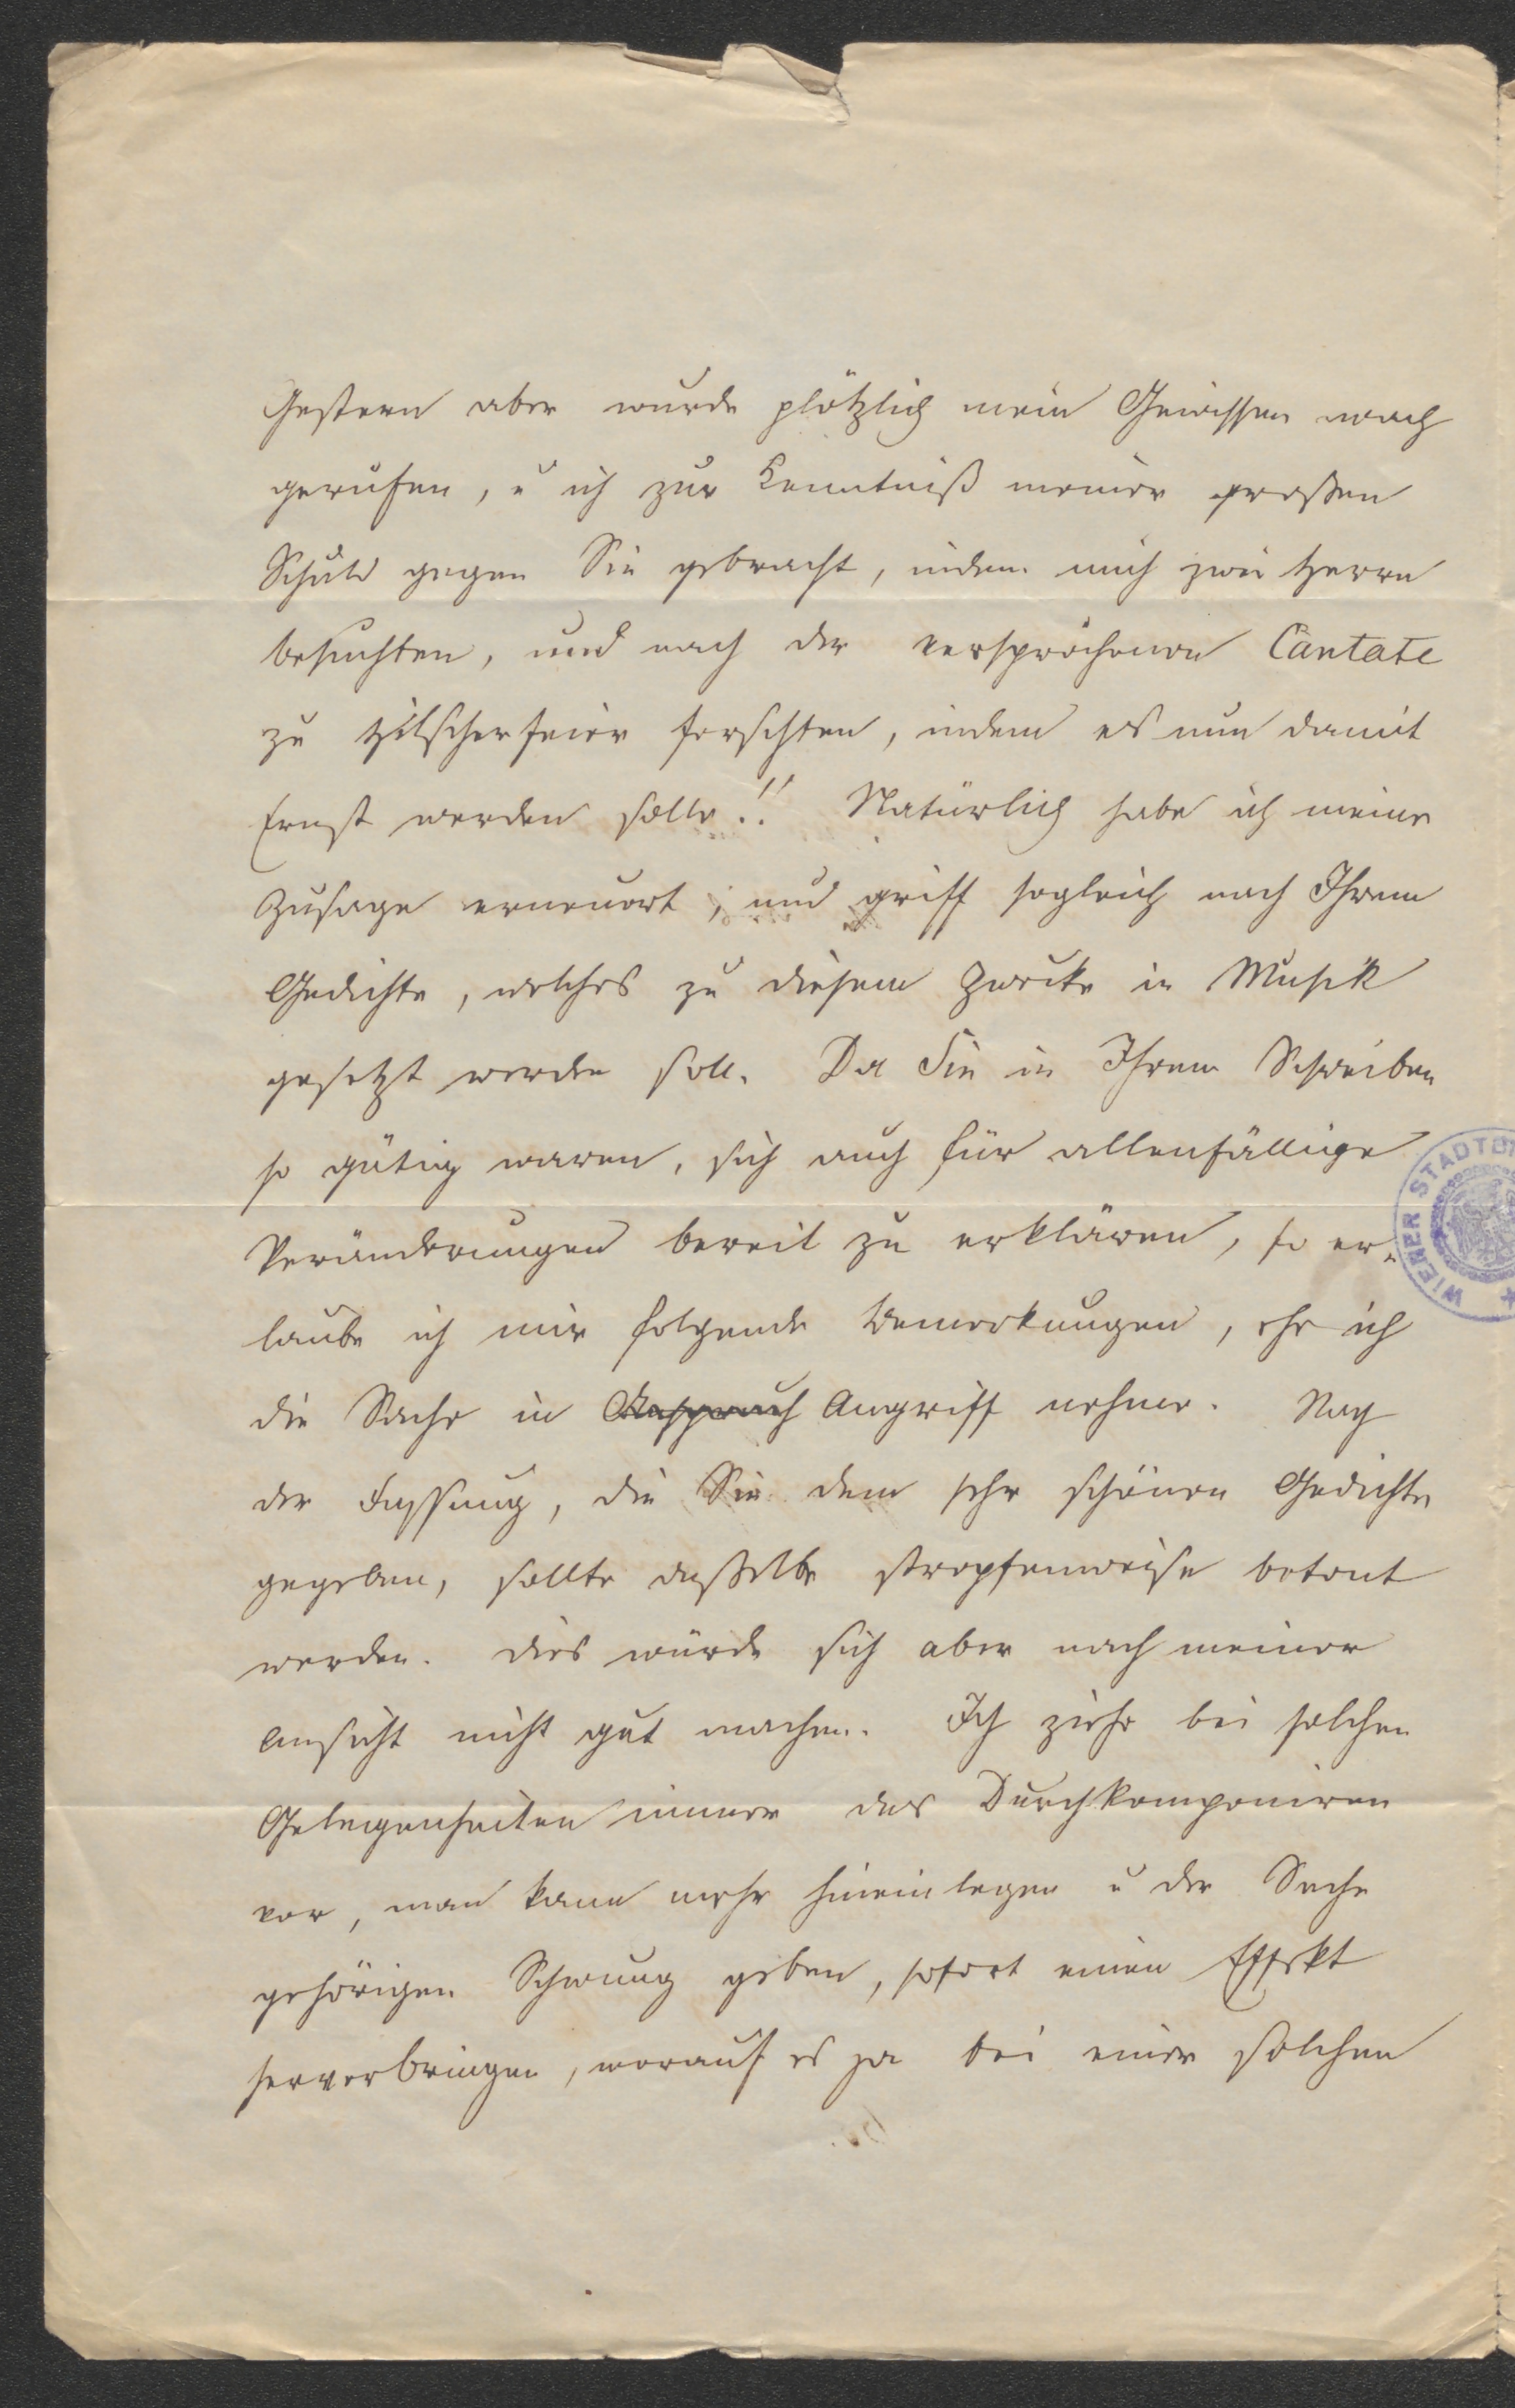 Gestern aber wurde plötzlich mein Gewissen wach
gerufen, u ich zur Kenntniß meiner großen
Schuld gegen Sie gebracht, indem mich zwei Herrn
besuchten, und nach der versprochenen Cantate
zu Hilscherfeier forschten, indem es nun damit
Ernst werden solle!! Natürlich habe ich meine
Zusage erneuert, und griff sogleich nach Ihrem
Gedichte, welches zu diesem Zwecke in Musik
gesetzt werden soll. Da Sie in Ihrem Schreiben
so gütig waren, sich auch für allenfällige
Veränderungen bereit zu erklären, so er-
laube ich mir folgende Bemerkungen, ehe ich
die Sache in Anspruch Angriff nehme. Nach
der Fassung, die Sie dem sehr schönen Gedichte
gegeben, sollte dasselbe strophenweise betont
werden. Dies würde sich aber nach meiner
Ansicht nicht gut machen. Ich ziehe bei solchen
Gelegenheiten immer das Durchkomponiren
vor, man kann mehr hineinlegen u der Sache
gehörigen Schwung geben, sofort einen Effekt
hervorbringen, worauf es ja bei einer solchen
WIENER STADT